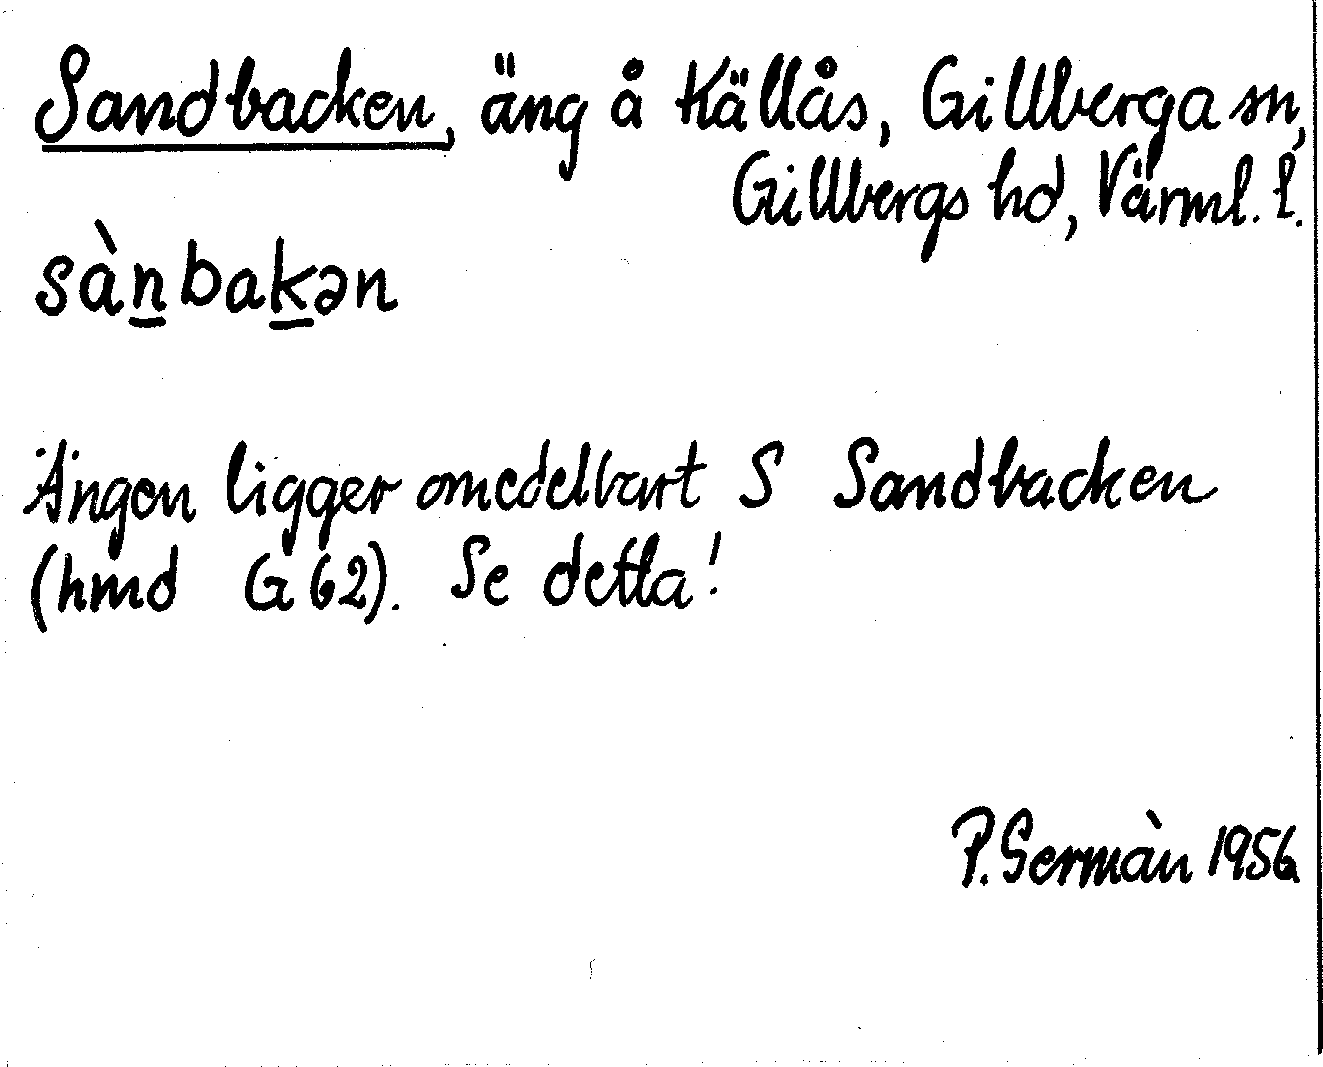 Sandbacken, äng å Källås, Gillberga sn,
Gillbergs hd, Värml. l.
sàn̲bak̲ən
Ängen ligger omedelbart S Sandbacken
(hmd G 62). Se detta!
P. Sermàn 1956